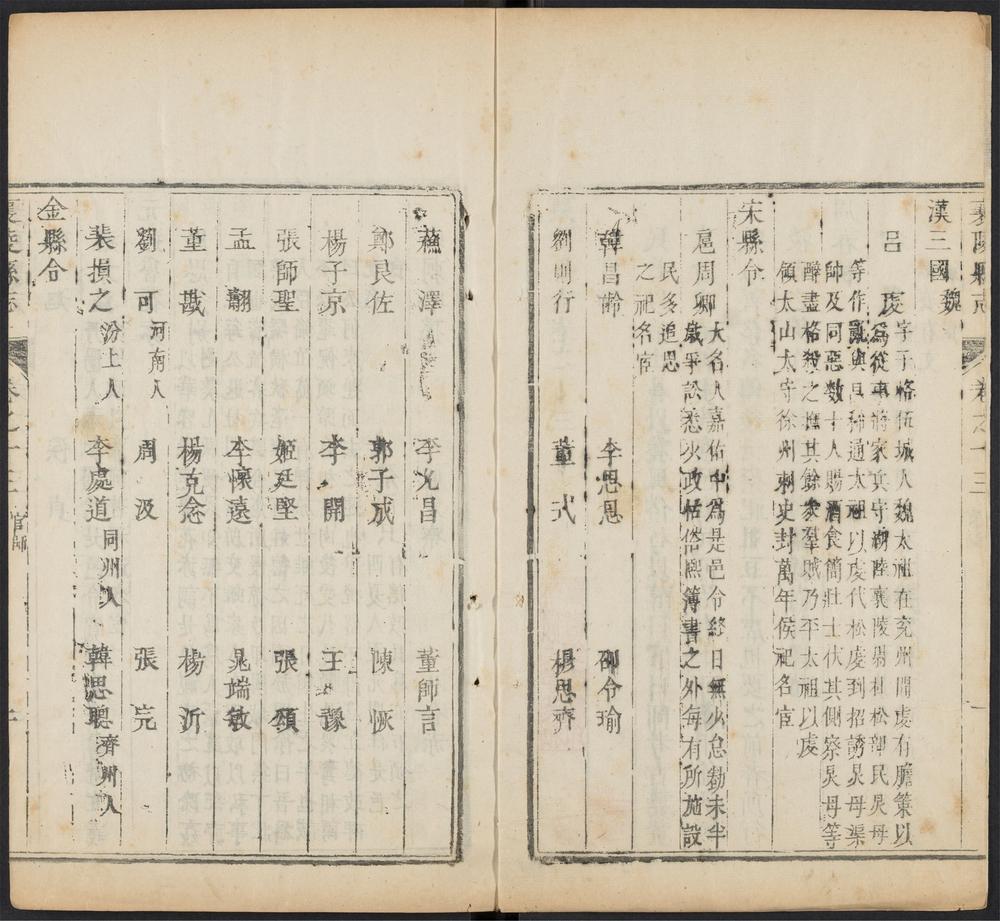 襄陵縣志 卷之十三
漢三國魏
呂 虔
字子恪任城人魏太祖在兗州聞虔有膽策以
為從事將家兵守湖陸襄陵賊杜松部民炅母
等作亂與昌豨通太祖以虔代松虔到招誘炅母渠
帥及同惡數十人賜酒食簡壯士伏其側察炅母等
醉盡格殺之撫其餘衆羣賊乃平太祖以虔
領太山太守徐州刺史封萬年侯祀名宦
宋縣令
扈周卿
大名人嘉佑中為是邑令終日無少怠勤未半
歲爭訟悉少政恬俗熙簿書之外每有所施設
民多追思
之祀名宦
韓昌齡 李思恩 邵令瑜
劉則行 董 式 楊思齊
蘇 澤 李允昌 董師言
鄭良佐 郭子成 陳 恢
楊子京 李 開 王 豫
張師聖 姬廷堅 張 頌
孟 翺 李懷遠 晁端敏
董 戩 楊克念 楊 沂
劉 可 河南人 周 汲 張 完
裴損之 汾上人 李處道 同州人 韓思聰 濟州人
金縣令
襄陵縣志 卷之十三 官師 一